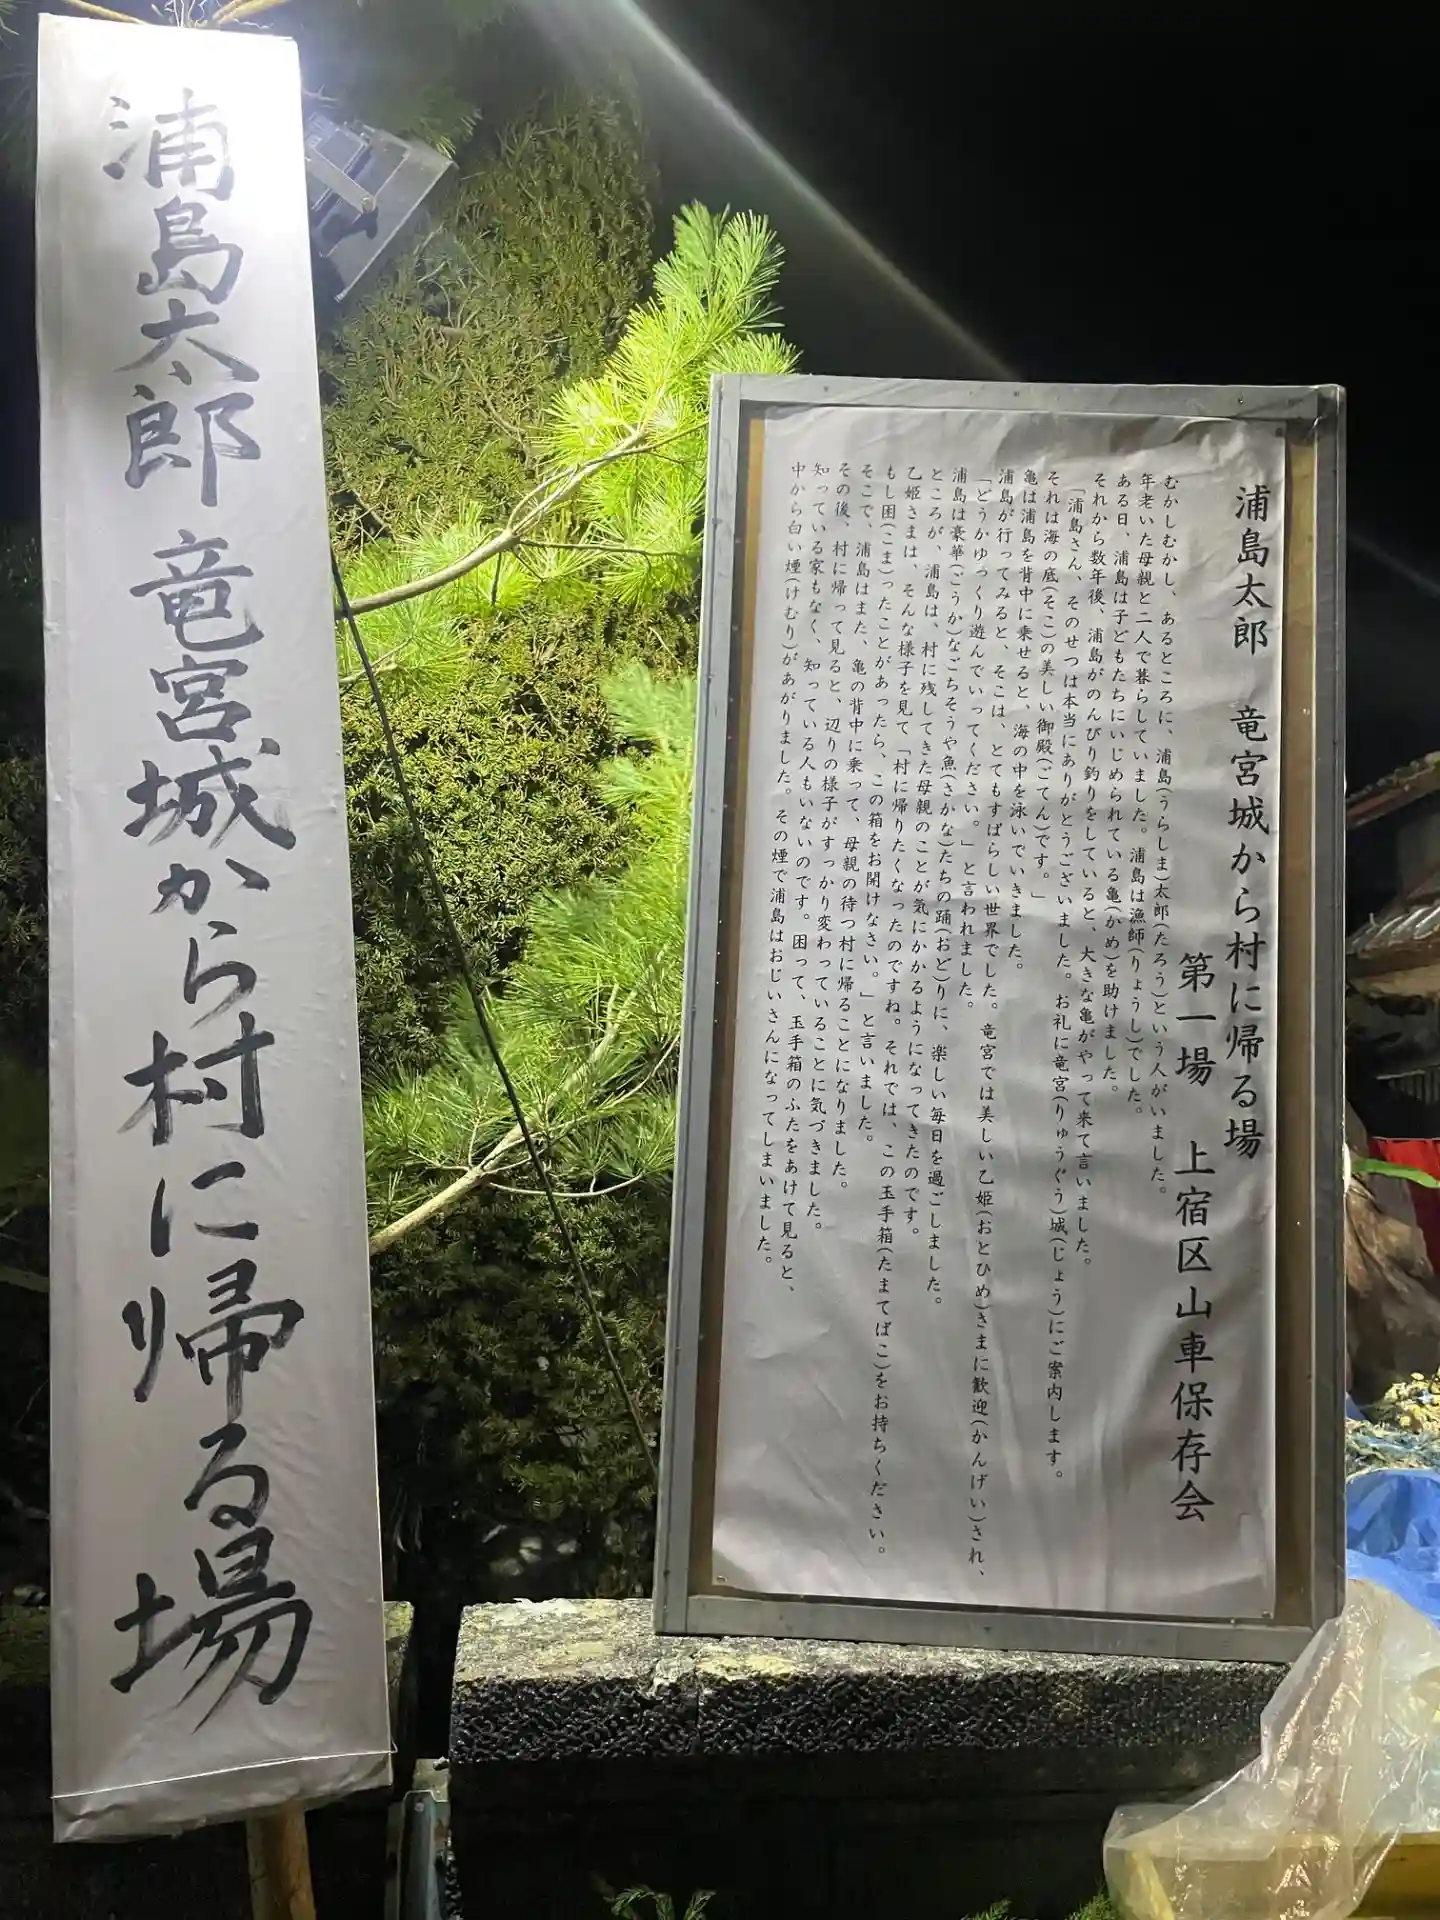 浦島太郎 竜宮城から村に帰る場
浦島太郎 竜宮城から村に帰る場
第一場 上宿区山車保存会
むかしむかし、あるところに、浦島(うらしま)太郎(たろう)という人がいました。
年老いた母親と二人で暮らしていました。浦島は漁師(りょうし)でした。
ある日、浦島は子どもたちにいじめられている亀(かめ)を助けました。
それから数年後、浦島がのんびり釣りをしていると、大きな亀がやって来て言いました。
「浦島さん、そのせつは本当にありがとうございました。お礼に竜宮(りゅうぐう)城(じょう)にご案内します。
それは海の底(そこ)の美しい御殿(ごてん)です。」
亀は浦島を背中に乗せると、海の中を泳いでいきました。
浦島が行ってみると、そこは、とてもすばらしい世界でした。竜宮では美しい乙姫(おとひめ)さまに歓迎(かんげい)され、
「どうかゆっくり遊んでいってください。」と言われました。
浦島は豪華(ごうか)なごちそうや魚(さかな)たちの踊(おど)りに、楽しい毎日を過ごしました。
ところが、浦島は、村に残してきた母親のことが気にかかるようになってきたのです。
乙姫さまは、そんな様子を見て「村に帰りたくなったのですね。それでは、この玉手箱(たまてばこ)をお持ちください。
もし困(こま)ったことがあったら、この箱をお開けなさい。」と言いました。
そこで、浦島はまた、亀の背中に乗って、母親の待つ村に帰ることになりました。
その後、村に帰って見ると、辺りの様子がすっかり変わっていることに気づきました。
知っている家もなく、知っている人もいないのです。困って、玉手箱のふたをあけて見ると、
中から白い煙(けむり)があがりました。その煙で浦島はおじいさんになってしまいました。